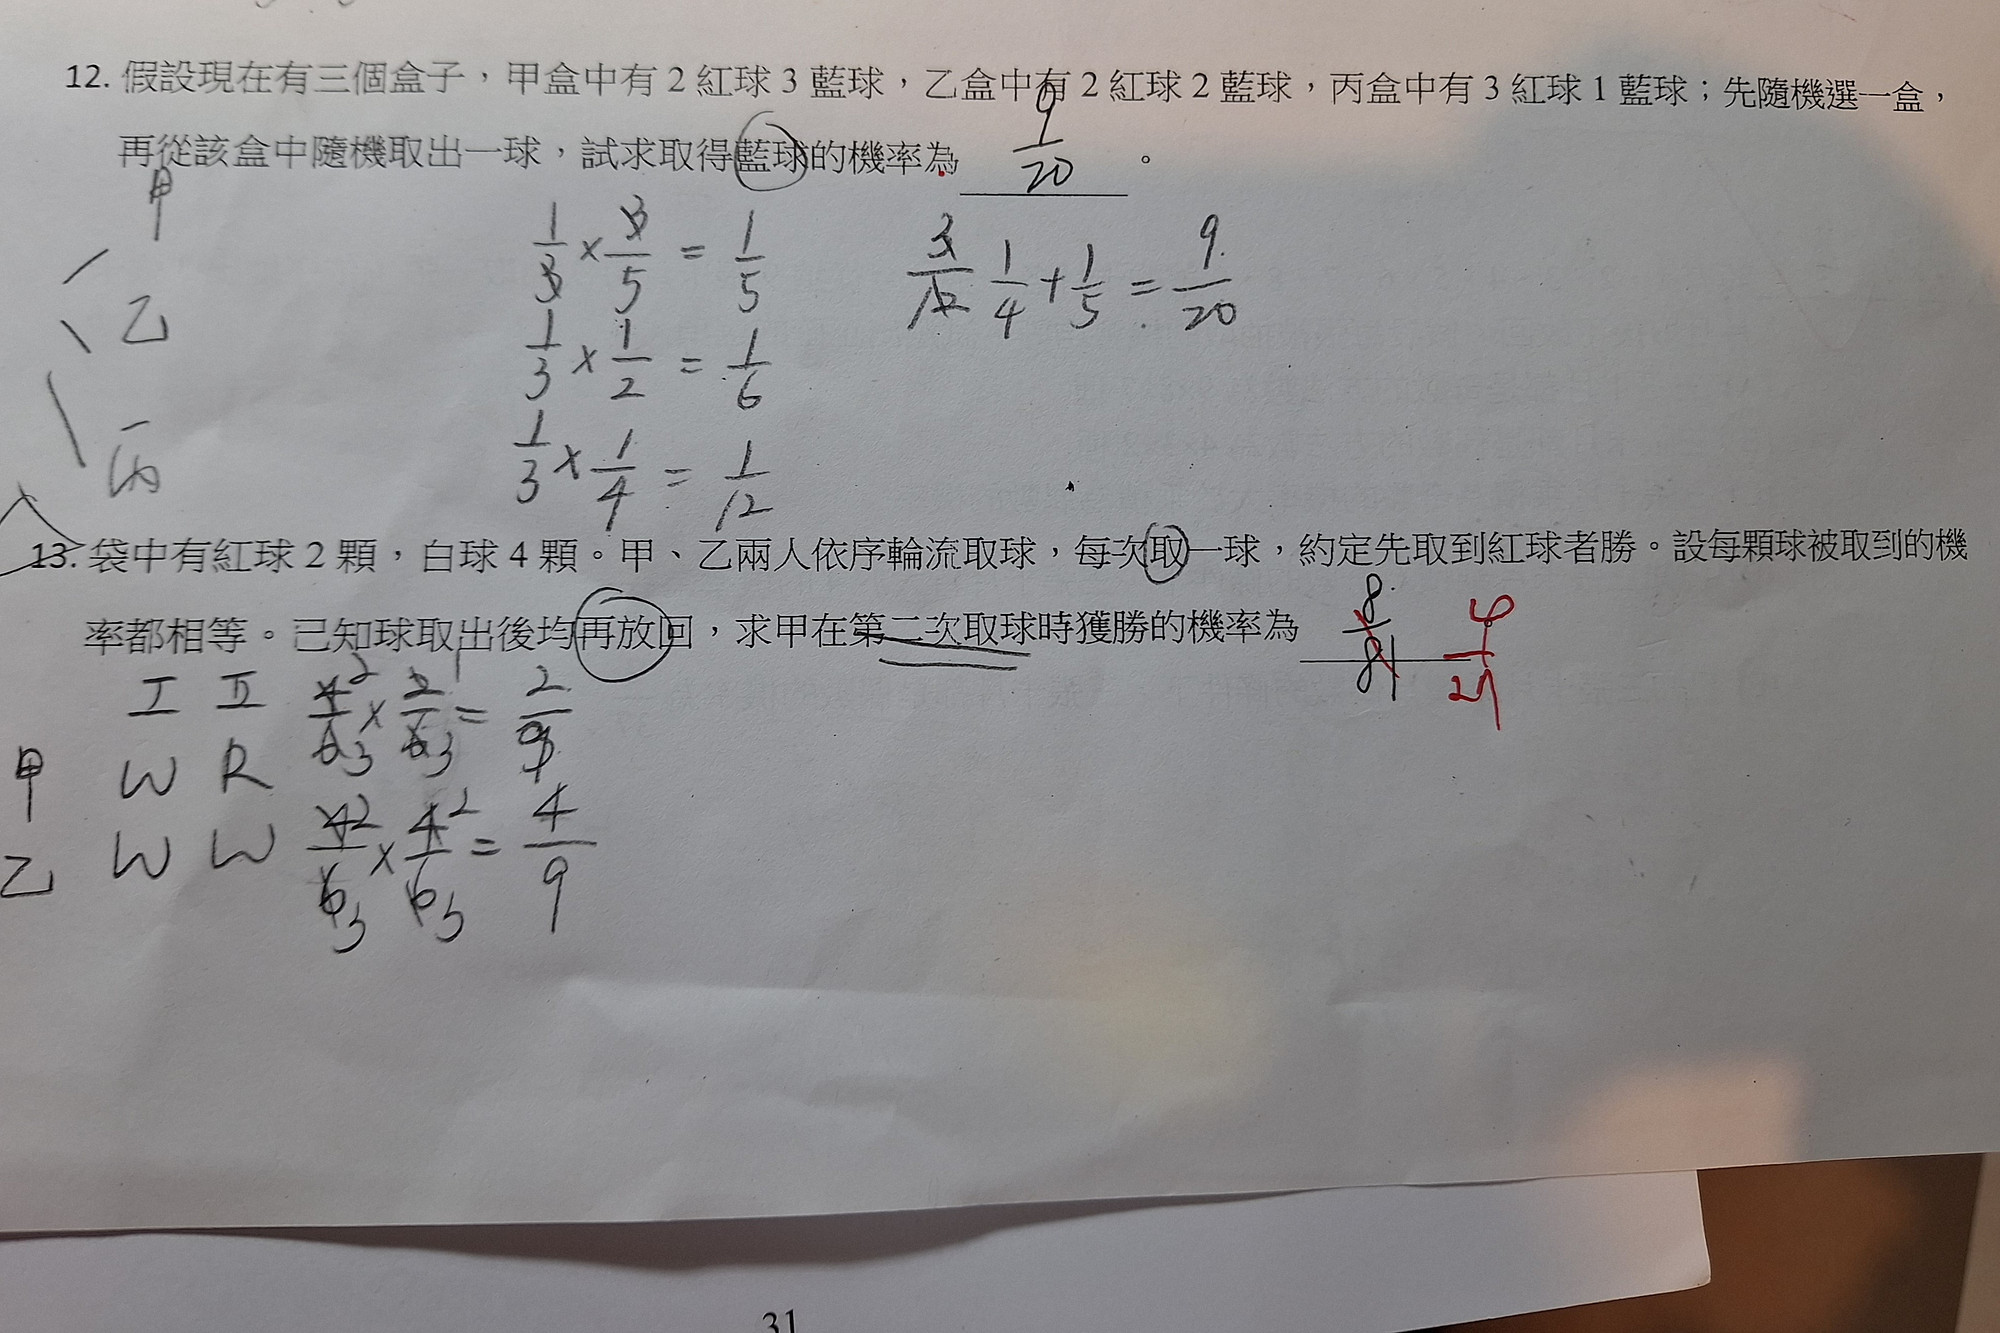 12. 假設現在有三個盒子，甲盒中有 2 紅球 3 藍球，乙盒中有 2 紅球 2 藍球，丙盒中有 3 紅球 1 藍球；先隨機選一盒，
再從該盒中隨機取出一球，試求取得藍球的機率為 9/20 。
甲
乙
丙
1/3 × 3/5 = 1/5
1/3 × 1/2 = 1/6
1/3 × 1/4 = 1/12
3/12 1/4 + 1/5 = 9/20
13. 袋中有紅球 2 顆，白球 4 顆。甲、乙兩人依序輪流取球，每次取一球，約定先取到紅球者勝。設每顆球被取到的機
率都相等。已知球取出後均再放回，求甲在第二次取球時獲勝的機率為 8/81 4/27
I II 4/6 × 2/6 = 2/9
甲 W R
乙 W W 4/6 × 4/6 = 4/9
31